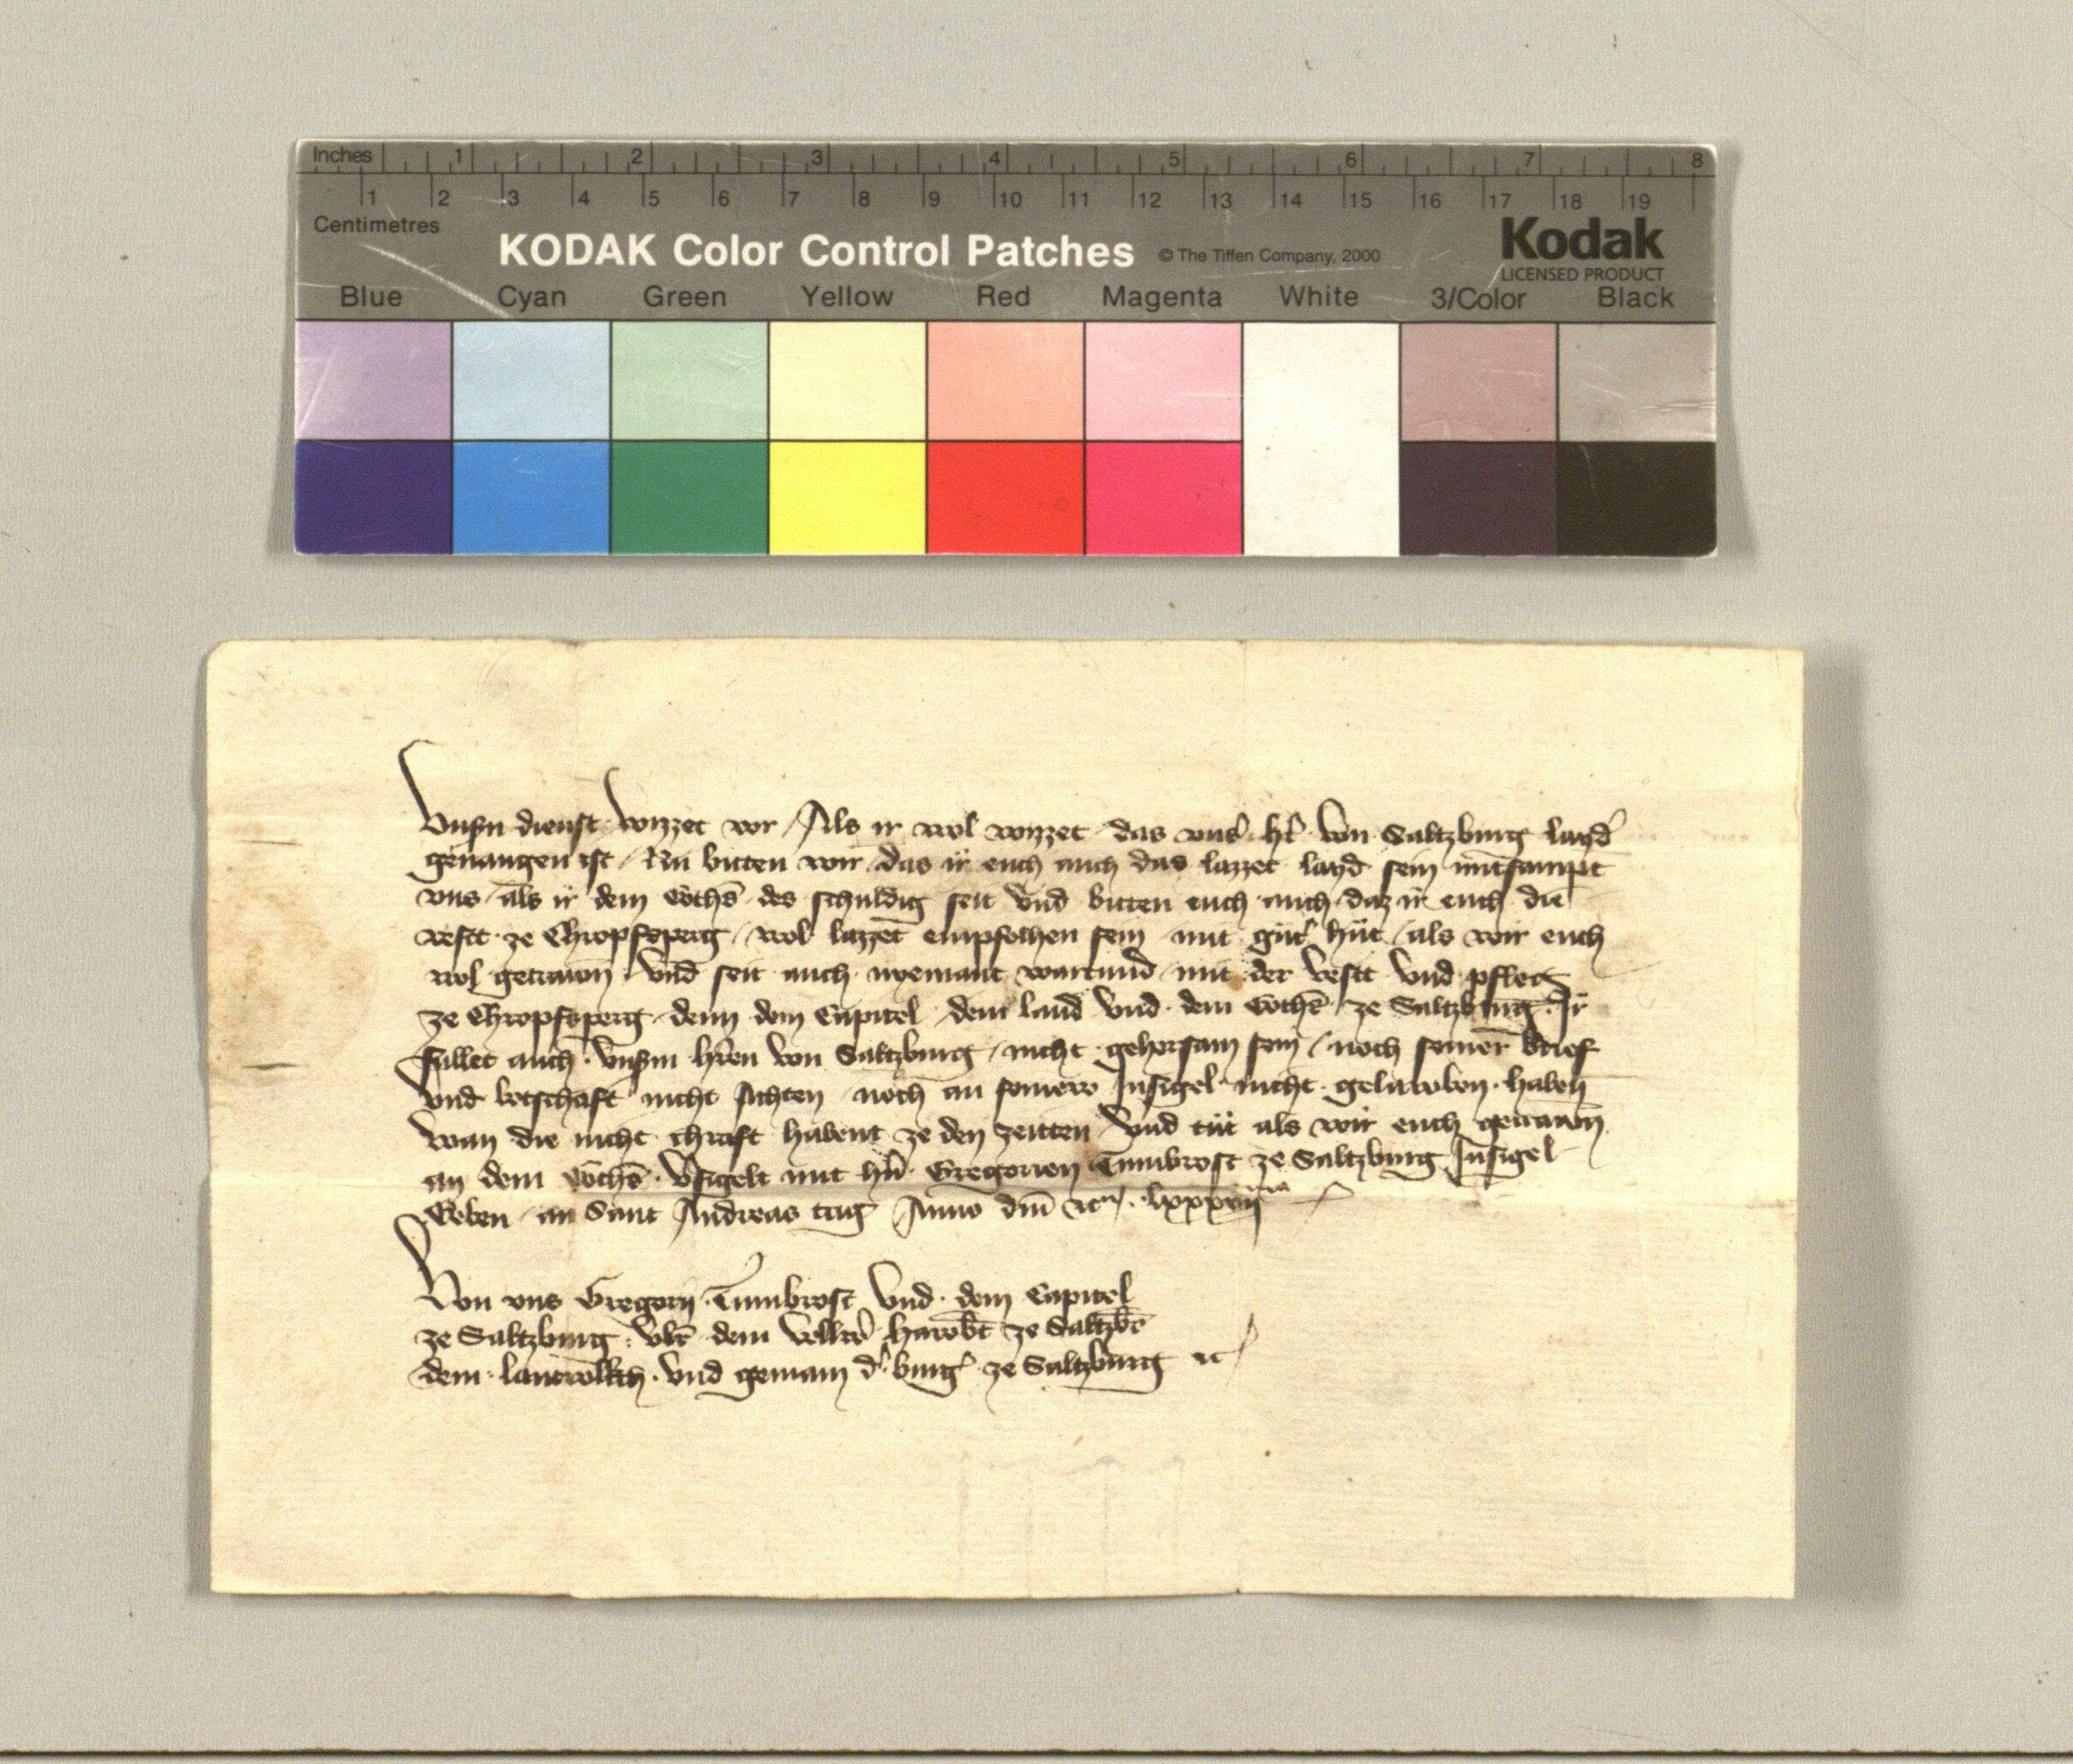 Inches 1 2 3 4 5 6 7 8
1 2 3 4 5 6 7 8 9 10 11 12 13 14 15 16 17 18 19
Centimetres
KODAK Color Control Patches © The Tiffen Company, 2000 Kodak
LICENSED PRODUCT
Blue Cyan Green Yellow Red Magenta White 3/Color Black
Vnsn dienst wizzet vor / Als ir wol wizzet das vns' h'r von Saltzburg layd'
geuangen ist / Nu bitten wir das ir euch auch das lazzet layd sein mitsampt
vns als ir dem Gotzhs des schuldig seit vnd bitten euch auch daz ir euch die
vestt ze Chropfsperg wol lazzet empfolhen sein mit gut' hut als wir euch
wol getrawn vnd seit auch nyemant wartund mit der vestt vnd pfleg
ze Chropfsperg denn dem Capitel dem land vnd dem Gotzhs ze Saltzburg Ir
sullet auch vnsm hren von Saltzburg / nicht gehorsam sein / noch seiner brief
vnd botschaft nicht achten noch an seinew Insigel nicht gelawben haben
wan die nicht chraft habent ze den zeitten vnd tut als wir euch getrawn
an dem Gotzhs v'sigelt mit hn Gregorien Tumbrost ze Saltzburg Insigel
Geben an Sant Andreas tag Anno dni &c lxxxvii
Von vns Gregorij Tumbrost vnd dem Capitel
ze Saltzburg vlr dem hawbt ze Saltzb
dem lantvolkch vnd gemain d' burg' ze Saltzburg &c